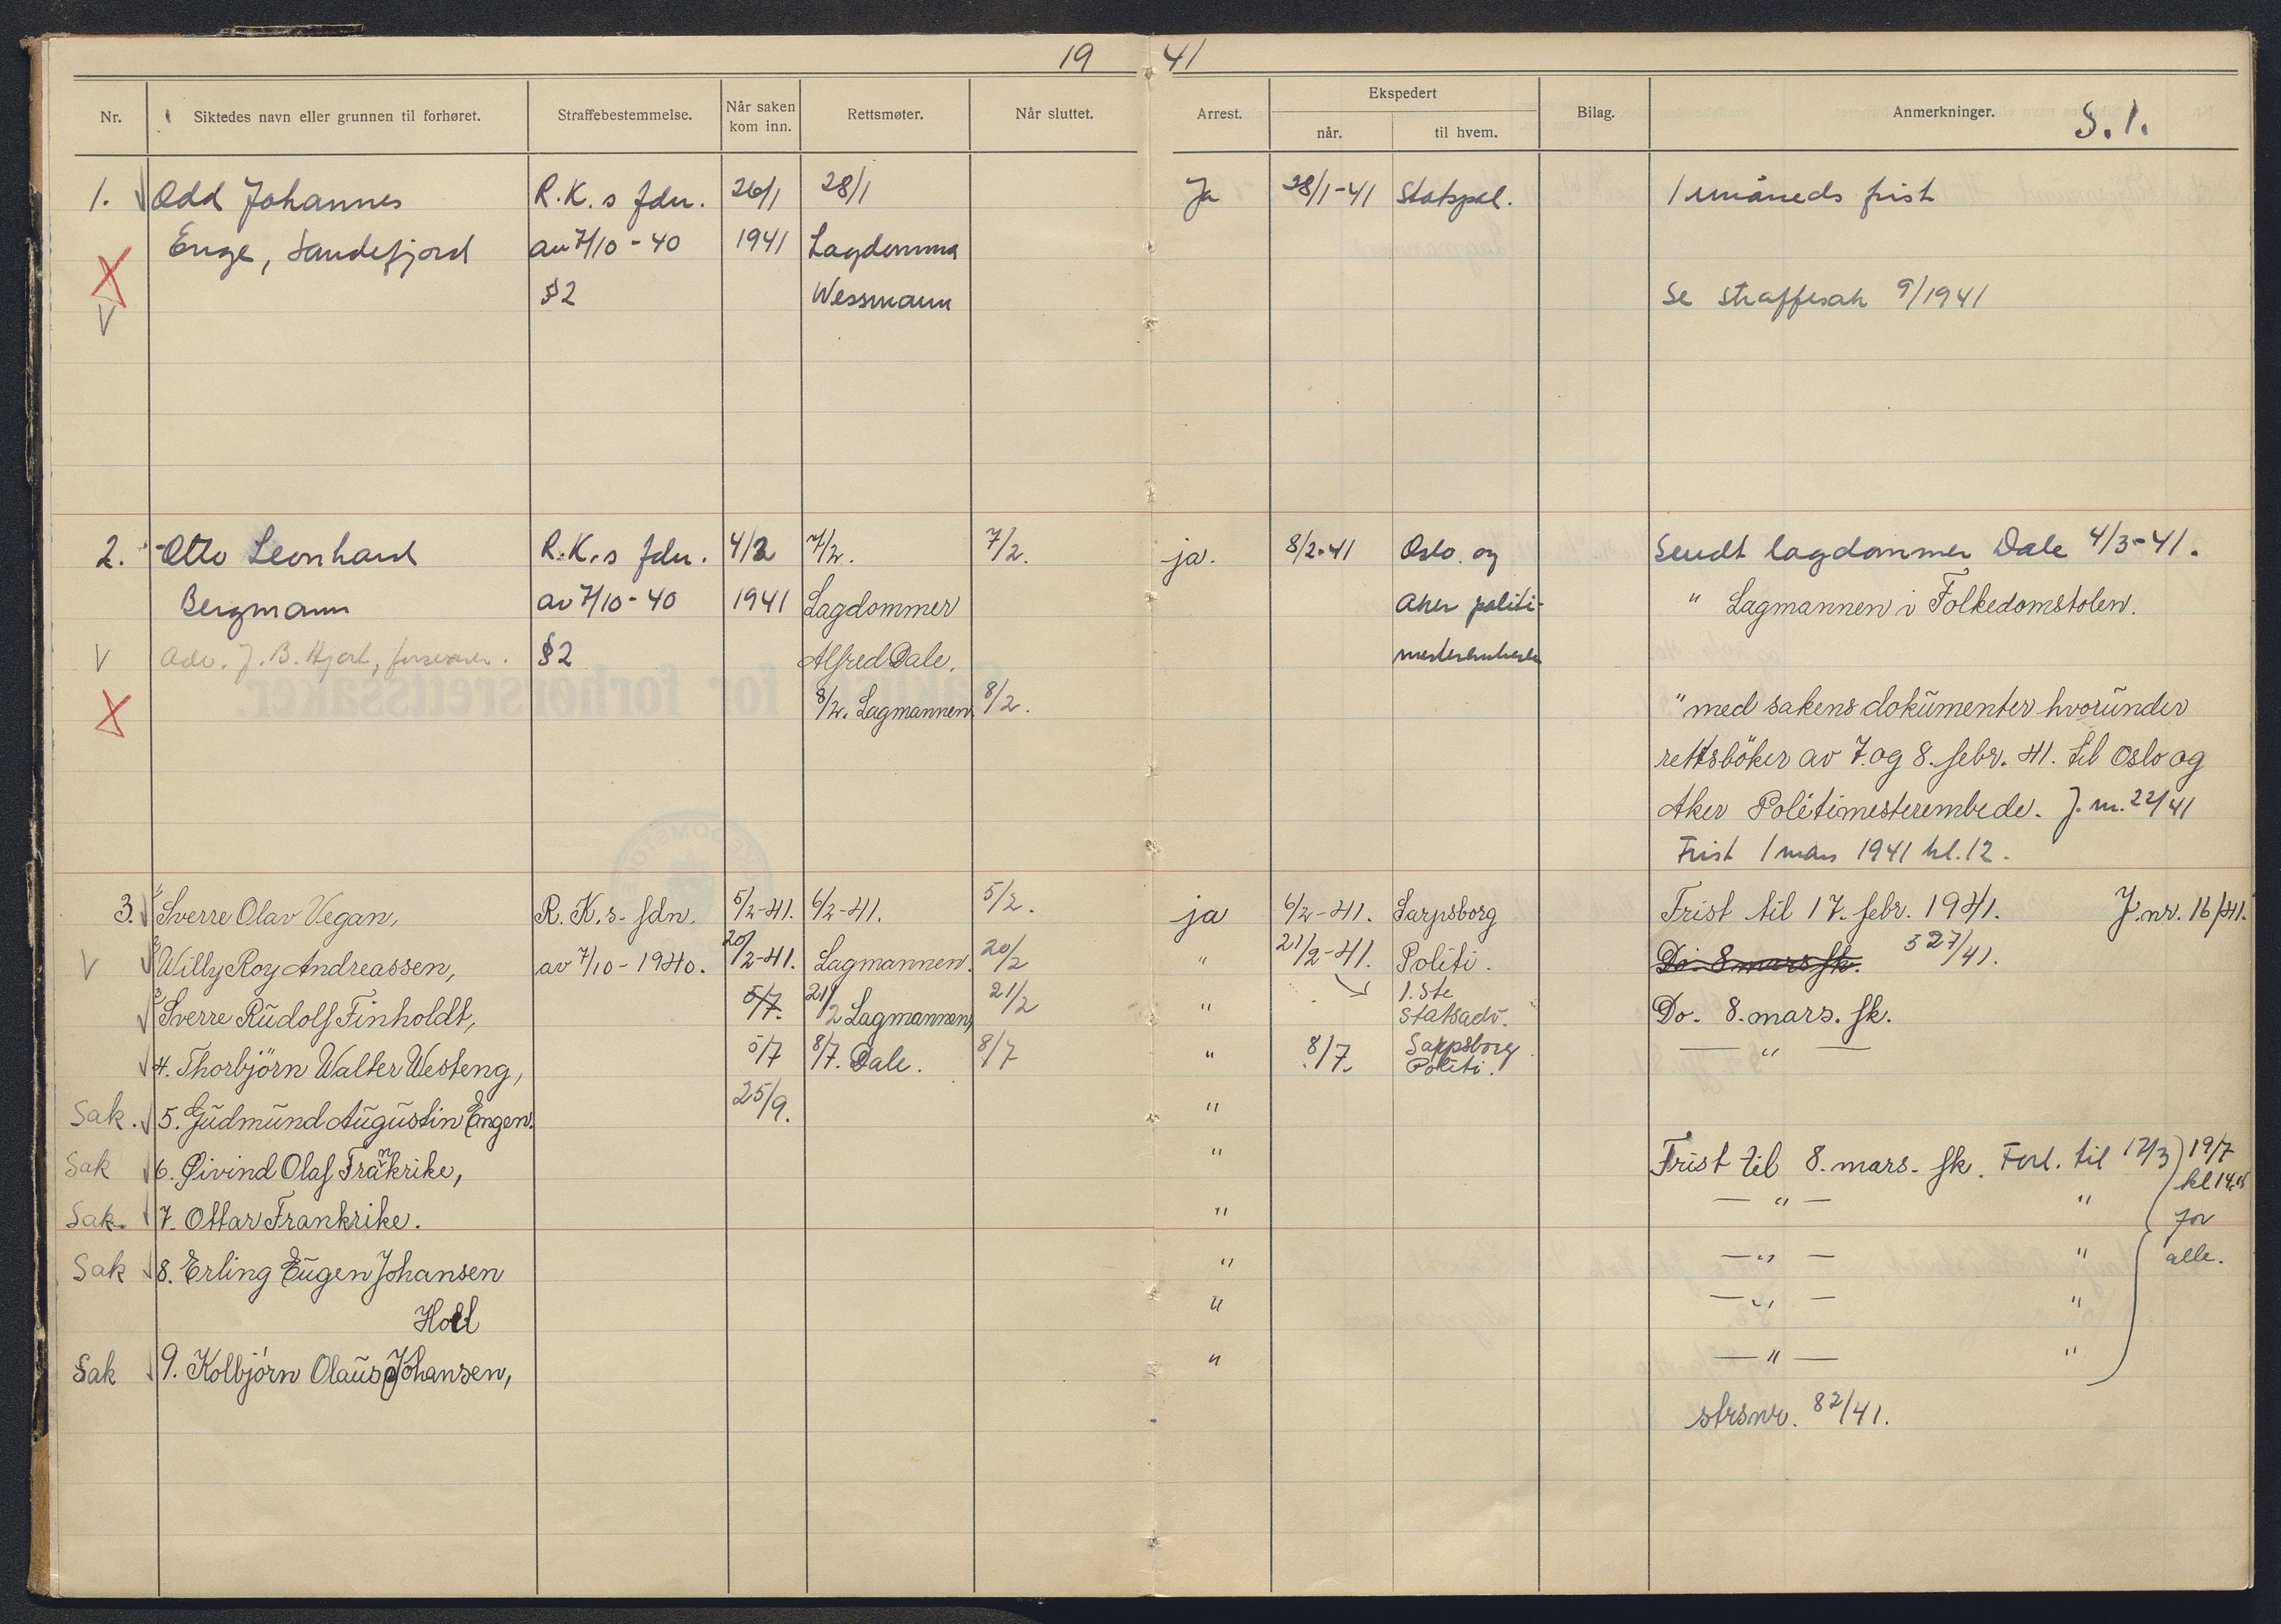 19 41
Nr. Siktedes navn eller grunnen til forhøret. Straffebestemmelse. Når saken kom inn. Rettsmøter. Når sluttet. Arrest. Ekspedert når. til hvem. Bilag. Anmerkninger. S. 1.
1. Odd Johannes R.K.s fdn. 26/1 28/1 Ja 28/1-41 Statspol. 1 måneds frist
Enge, Sandefjord av 7/10-40 1941 Lagdomma
§2 Wessmann Se straffesak 9/1941
2. Otto Leonhard R.K.s fdn. 4/2 7/2. 7/2. ja. 8/2-41 Oslo og Sendt lagdommer Dale 4/3-41.
Bergmann av 7/10-40 1941 Lagdommer Aker politi- " Lagmannen i Folkedomstolen.
Adv. J. B. Hjort, forsvarer. §2 Alfred Dale.
8/2. Lagmannen 8/2. " med sakens dokumenter hvorunder
rettsböker av 7. og 8. febr. 41. til Oslo og
Aker Politimesterembede. J.nr. 22/41
Frist 1 mars 1941 kl. 12.
3. Sverre Olav Vegan, R.K.s- fdn. 5/2-41. 6/2-41. 5/2. ja 6/2-41. Sarpsborg Frist til 17. febr. 1941. J.nr. 16/41.
Willy Roy Andreassen, av 7/10-1940. 20/2-41. Lagmannen. 20/2 " 21/2-41. Politi. Do. 8 mars fk. 327/41.
3 Sverre Rudolf Finholdt, 5/7. 21/2 Lagmannen, 21/2 " 1. Ste Statsadv. Do. 8. mars. fk.
4. Thorbjörn Walter Westeng, 5/7 8/7. Dale. 8/7 " 8/7. Sarpsborg Politi. — " —
Sak. 5. Gudmund Augustin Engen. 25/9. "
Sak 6. Øivind Olaf Frankrike, " Frist til 8. mars. fk. Forl. til 12/3 19/7
kl 14
Sak. 7. Ottar Frankrike. " — " — " for
Sak 8. Erling Eugen Johansen " — " — " alle.
Holl " — " — "
Sak 9. Kolbjörn Olaus Johansen, " — " — "
strsnr. 82/41.